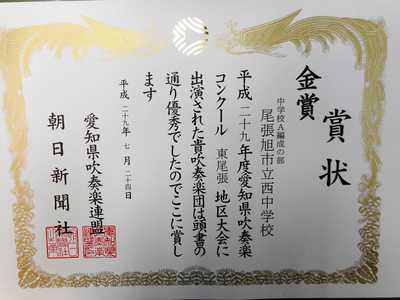 賞状
金賞
中学校A編成の部
尾張旭市立西中学校
平成二十九年度愛知県吹奏楽
コンクール 東尾張 地区大会に
出演された貴吹奏楽団は頭書の
通り優秀でしたのでここに賞し
ます
平成 二十九 年 七 月 二十四 日
愛知県吹奏楽連盟
朝日新聞社